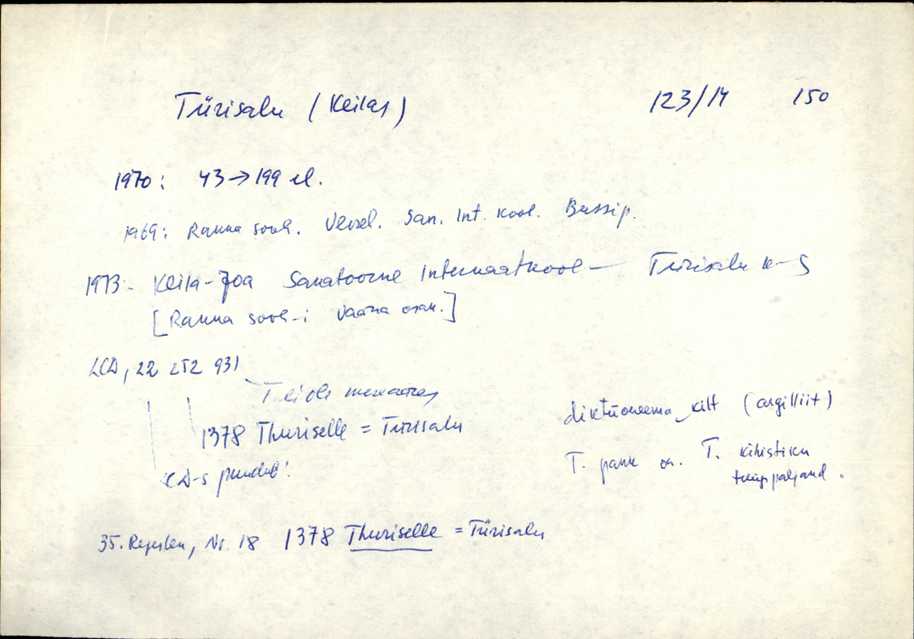 Türisalu (Keilas) 123/14 150
1970: 43→199 el.
1969: Ranna sovh. San. Int. kool. Bussip.
1973 - Keila-Joa Sanatoorne Internaatkool — Türisalu k-s
[Ranna sovh-i Vääna osak.]
LCD, 22 252 931
T. ei ole
1378 Thuriselle = Türisalu
LCD-s puudub!
diktüoneema kilt (argilliit)
T. pank on T. kihistiku
tüüppaljand.
35. Regesten, Nr. 18 1378 Thuriselle = Türisalu